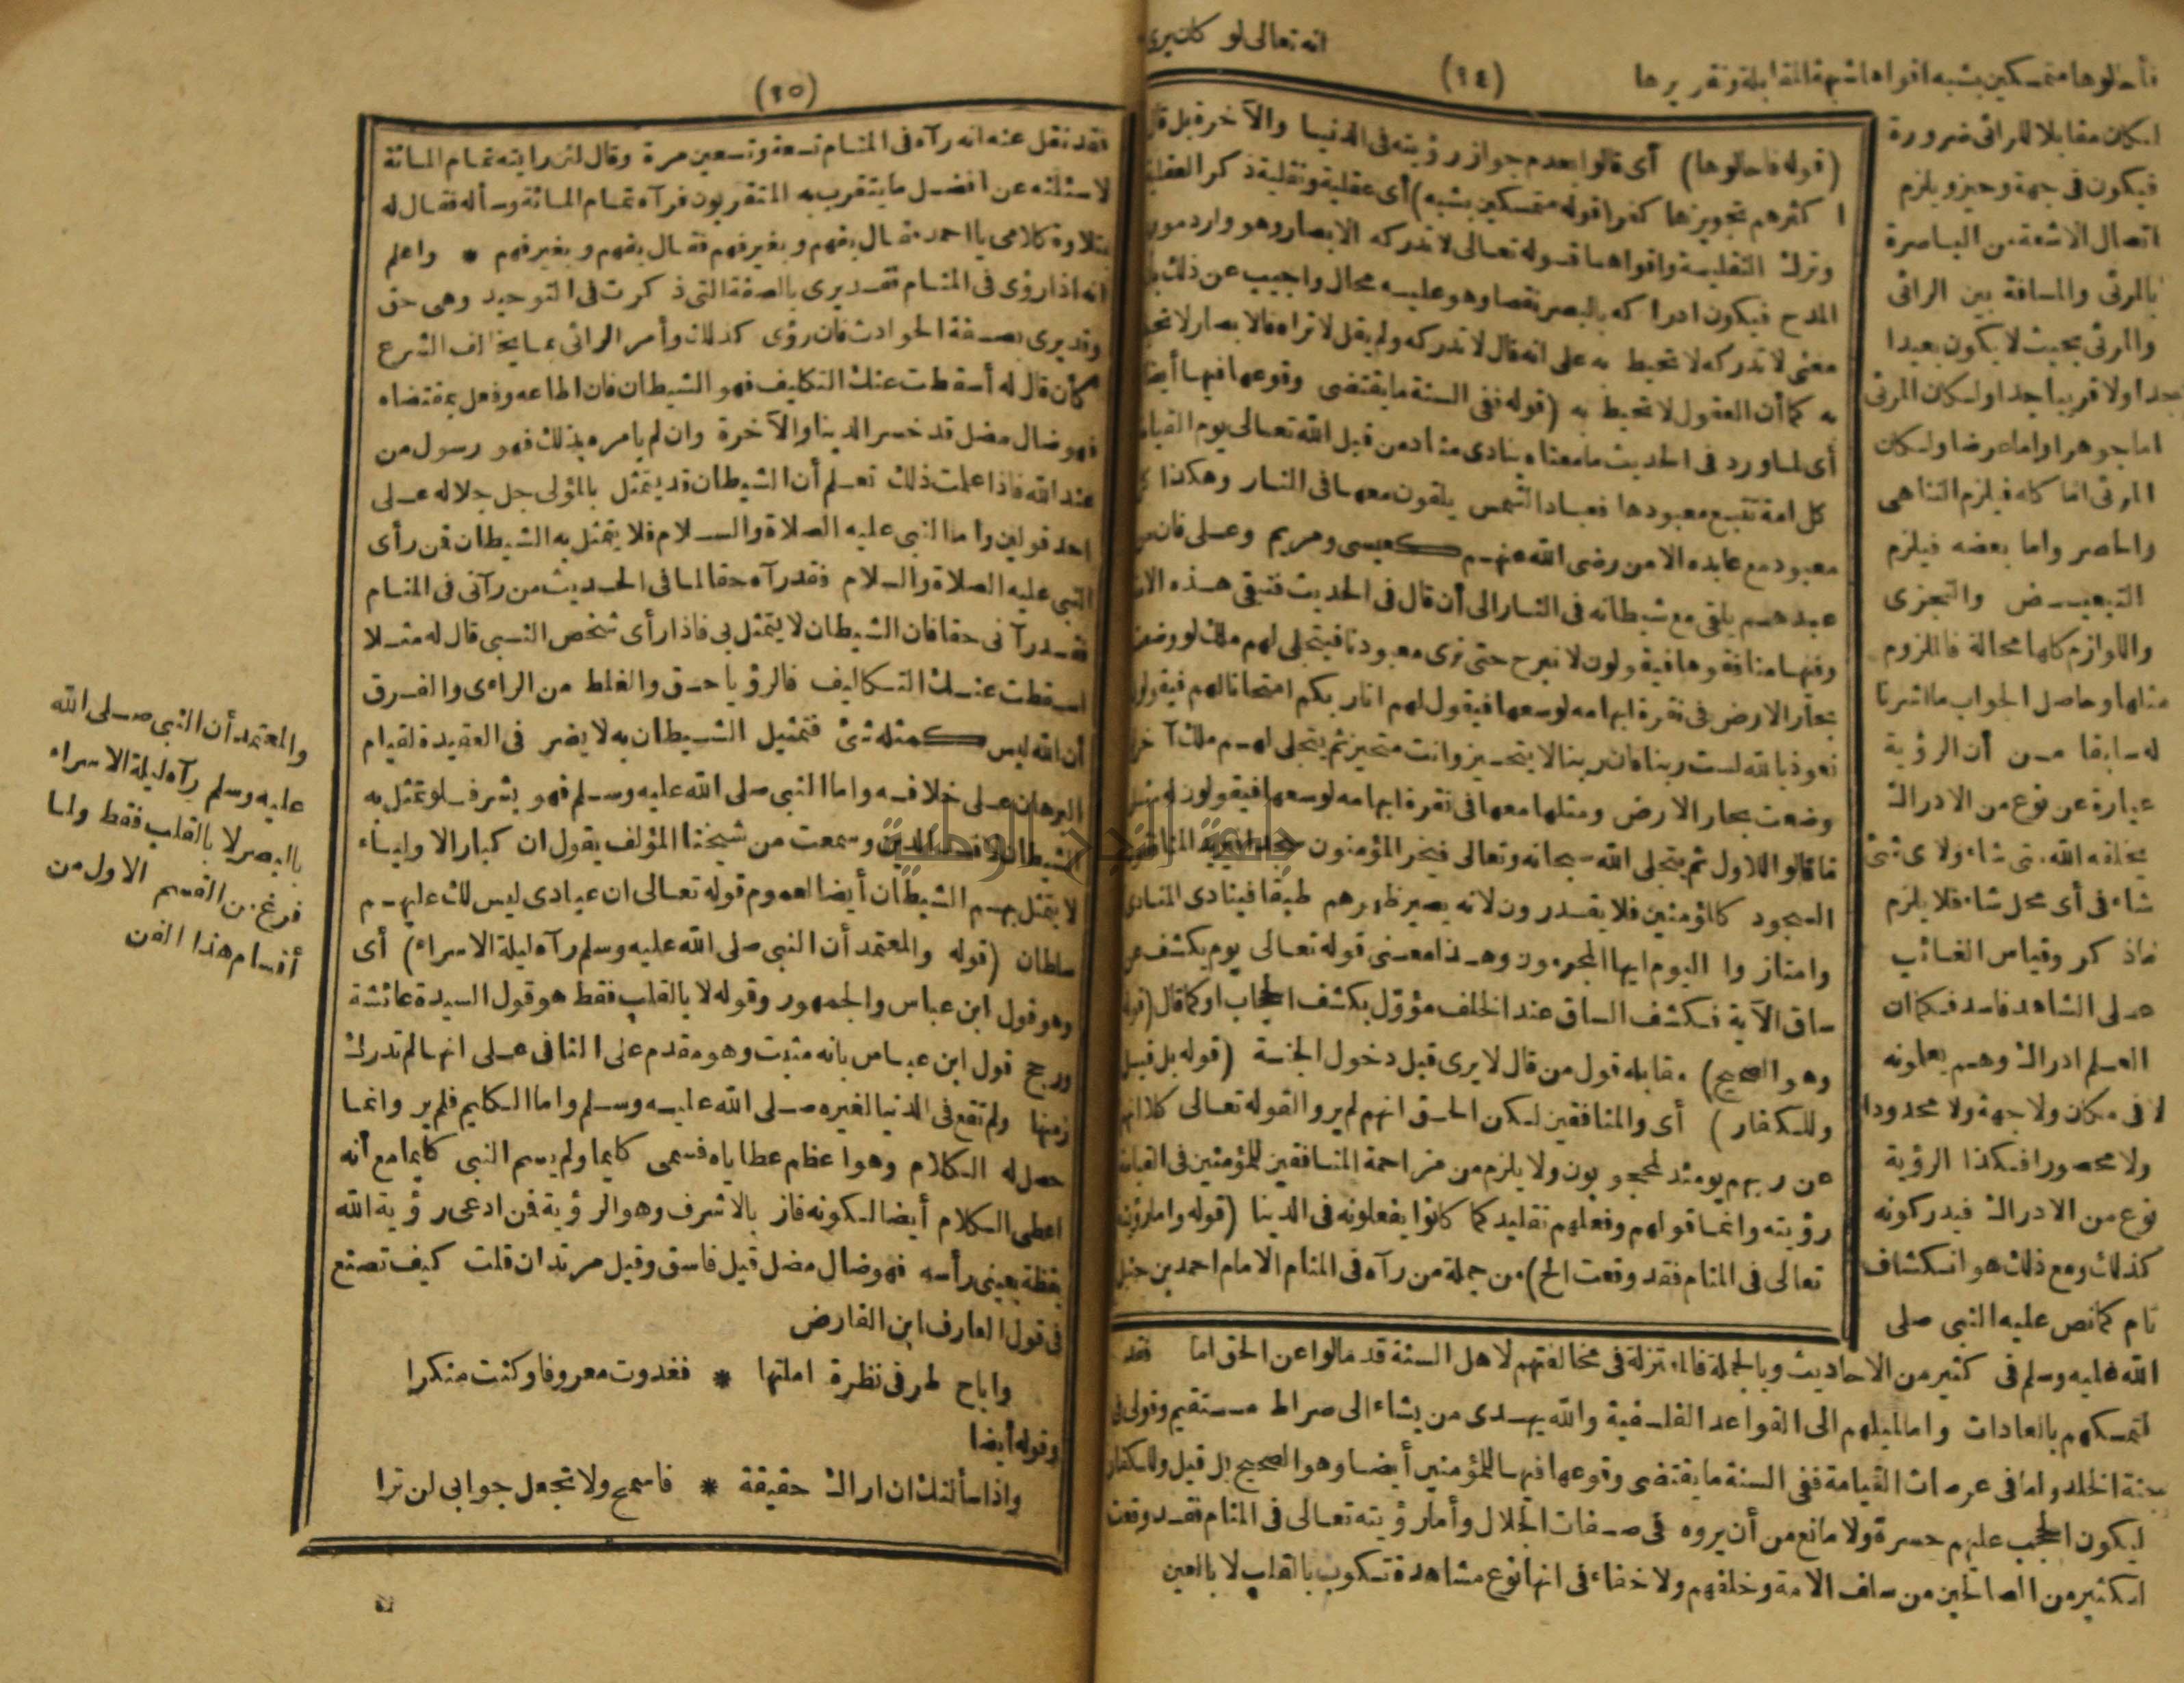 انه تعالى لو كان يرى
(٩٤)
فأحالوها متمسكين بشبه اقواها شبهة المقابلة وتقريرها
لكان مقابلا للرائى ضرورة
فيكون فى جهة وحيز ويلزم
اتصال الاشعة من الباصرة
بالمرئى والمسافة بين الرائى
والمرئى بحيث لا يكون بعيدا
جدا ولا قريبا جدا ولكان المرئى
اما جوهرا واما عرضا ولكان
المرئى اما كله فيلزم التناهى
والحصر واما بعضه فيلزم
التبعيض والتجزى
واللوازم كلها محالة فالملزوم
مثلها وحاصل الجواب ما اشرنا
له سابقا من أن الرؤية
عبارة عن نوع من الادراك
يخلقه الله متى شاء ولاى شئ
شاء فى أى محل شاء فلا يلزم
ماذكر وقياس الغائب
على الشاهد فاسد فكما ان
العلم ادراك وهم يعلمونه
لا فى مكان ولا جهة ولا محدودا
ولا محصورا فكذا الرؤية
نوع من الادراك فيدركونه
كذلك ومع ذلك هو انكشاف
تام كما نص عليه النبى صلى
الله عليه وسلم فى كثير من الاحاديث وبالجملة فالمعتزلة فى مخالفتهم لاهل السنة قد مالوا عن الحق اما
لتمسكهم بالعادات واما لميلهم الى القواعد الفلسفية والله يهدى من يشاء الى صراط مستقيم وقولى فى
جنة الخلد واما فى عرصات القيامة ففى السنة ما يقتضى وقوعها فيها للمؤمنين أيضا وهو الصحيح بل قيل وللكفار
ليكون الحجب عليهم حسرة ولا مانع من أن يروه فى صفات الجلال وأما رؤيته تعالى فى المنام فقد وقعت
لكثير من الصالحين من سلف الامة وخلفهم ولا خفاء فى انها نوع مشاهدة تكون بالقلب لا بالعين
(قوله فاحالوها) أى قالوا بعدم جواز رؤيته فى الدنيا والآخرة بل قال
اكثرهم تجويزها كفر (قوله متمسكين بشبه) أى عقلية ونقلية ذكر العقلية
وترك النقلية واقواها قوله تعالى لا تدركه الابصار وهو وارد مورد
المدح فيكون ادراكه بالبصر نقصا وهو عليه محال واجيب عن ذلك بان
معنى لا تدركه لا تحيط به على انه قال لا تدركه ولم يقل لا تراه فالابصار لا تحيط
به كما أن العقول لا تحيط به (قوله ففى السنة ما يقتضى وقوعها فيها أيضا)
أى لما ورد فى الحديث ما معناه ينادى مناد من قبل الله تعالى يوم القيامة
كل امة تتبع معبودها فعباد الشمس يلقون معها فى النار وهكذا كل
معبود مع عابده الا من رضى الله عنهم كعيسى ومريم وعلى فان من
عبدهم يلقى مع شيطانه فى النار الى أن قال فى الحديث فتبقى هذه الامة
وفيها منافقوها فيقولون لا نبرح حتى نرى معبودنا فيتجلى لهم ملك لو وضعت
بحار الارض فى نقرة ابهامه لوسعها فيقول لهم انا ربكم امتحانا لهم فيقولون
نعوذ بالله لست ربنا فان ربنا لا يتحيز وانت متحيز ثم يتجلى لهم ملك آخر لو
وضعت بحار الارض ومثلها معها فى نقرة ابهامه لوسعها فيقولون له مثل
ما قالوا للاول ثم يتجلى الله سبحانه وتعالى فيخر المؤمنون سجدا
السجود كالمؤمنين فلا يقدرون لانه يصير ظهرهم طبقا فينادى المنادى
وامتازوا اليوم ايها المجرمون وهذا معنى قوله تعالى يوم يكشف عن
ساق الآية فكشف الساق عند الخلف مؤول بكشف الحجاب او كما قال (قوله
وهو الصحيح) مقابله قول من قال لا يرى قبل دخول الجنة (قوله بل قيل
وللكفار) أى والمنافقين لكن الحق انهم لم يروا لقوله تعالى كلا انهم
عن ربهم يومئذ لمحجوبون ولا يلزم من مزاحمة المنافقين للمؤمنين فى القيامة
رؤيته وانما قولهم وفعلهم تقليد كما كانوا يفعلونه فى الدنيا (قوله واما رؤيته
تعالى فى المنام فقد وقعت الخ) من جملة من رآه فى المنام الامام احمد بن حنبل
فقد
(٩٥)
فقد نقل عنه انه رآه فى المنام تسعة وتسعين مرة وقال لئن رايته تمام المائة
لاسئلنه عن افضل ما يتقرب به المتقربون فرآه تمام المائة وسأله فقال له
بتلاوة كلامى يا احمد فقال بفهم وبغيرفهم فقال بفهم وبغيرفهم * واعلم
انه اذا رؤى فى المنام فقد يرى بالصفة التى ذكرت فى التوحيد وهى حق
وقد يرى بصفة الحوادث فان رؤى كذلك وأمر الرائى بما يخالف الشرع
كأن قال له أسقطت عنك التكاليف فهو الشيطان فان اطاعه وفعل بمقتضاه
فهو ضال مضل قد خسر الدنيا والآخرة وان لم يامره بذلك فهو رسول من
عند الله فاذا علمت ذلك تعلم أن الشيطان قد يتمثل بالمولى جل جلاله على
احد قولين واما النبى عليه الصلاة والسلام فلا يتمثل به الشيطان فمن رأى
النبى عليه الصلاة والسلام فقد رآه حقا لما فى الحديث من رآنى فى المنام
فقد رآنى حقا فان الشيطان لا يتمثل بى فاذا رأى شخص النبى قال له مثلا
اسقطت عنك التكاليف فالرؤيا حق والغلط من الراءى والفرق
أن الله ليس كمثله شئ فتمثيل الشيطان به لا يضر فى العقيدة لقيام
البرهان على خلافه واما النبى صلى الله عليه وسلم فهو بشر فلو تمثل به
الشيطان لافسد الدين وسمعت من شيخنا المؤلف يقول ان كبار الاولياء
لا يتمثل بهم الشيطان أيضا لعموم قوله تعالى ان عبادى ليس لك عليهم
سلطان (قوله والمعتمد أن النبى صلى الله عليه وسلم رآه ليلة الاسراء) أى
وهو قول ابن عباس والجمهور وقوله لا بالقلب فقط هو قول السيدة عائشة
ورجح قول ابن عباس بانه مثبت وهو مقدم على النافى على انها لم تدرك
زمنها ولم تقع فى الدنيا لغيره صلى الله عليه وسلم واما الكليم فلم ير وانما
حصل له الكلام وهو اعظم عطاياه فسمى كليما ولم يسم النبى كليما مع أنه
اعطى الكلام أيضا لكونه فاز بالاشرف وهو الرؤية فمن ادعى رؤية الله
يقظة بعينى رأسه فهو ضال مضل قيل فاسق وقيل مرتد ان قلت كيف تصنع
فى قول العارف ابن الفارض
واباح طرفى نظرة املتها * فغدوت معروفا وكنت منكرا
وقوله أيضا
واذا سألتك ان اراك حقيقة * فاسمح ولا تجعل جوابى لن ترا
والمعتمد أن النبى صلى الله
عليه وسلم رآه ليلة الاسراء
بالبصر لا بالقلب فقط ولما
فرغ من القسم الاول من
أقسام هذا الفن
جامعة النجاح الوطنية